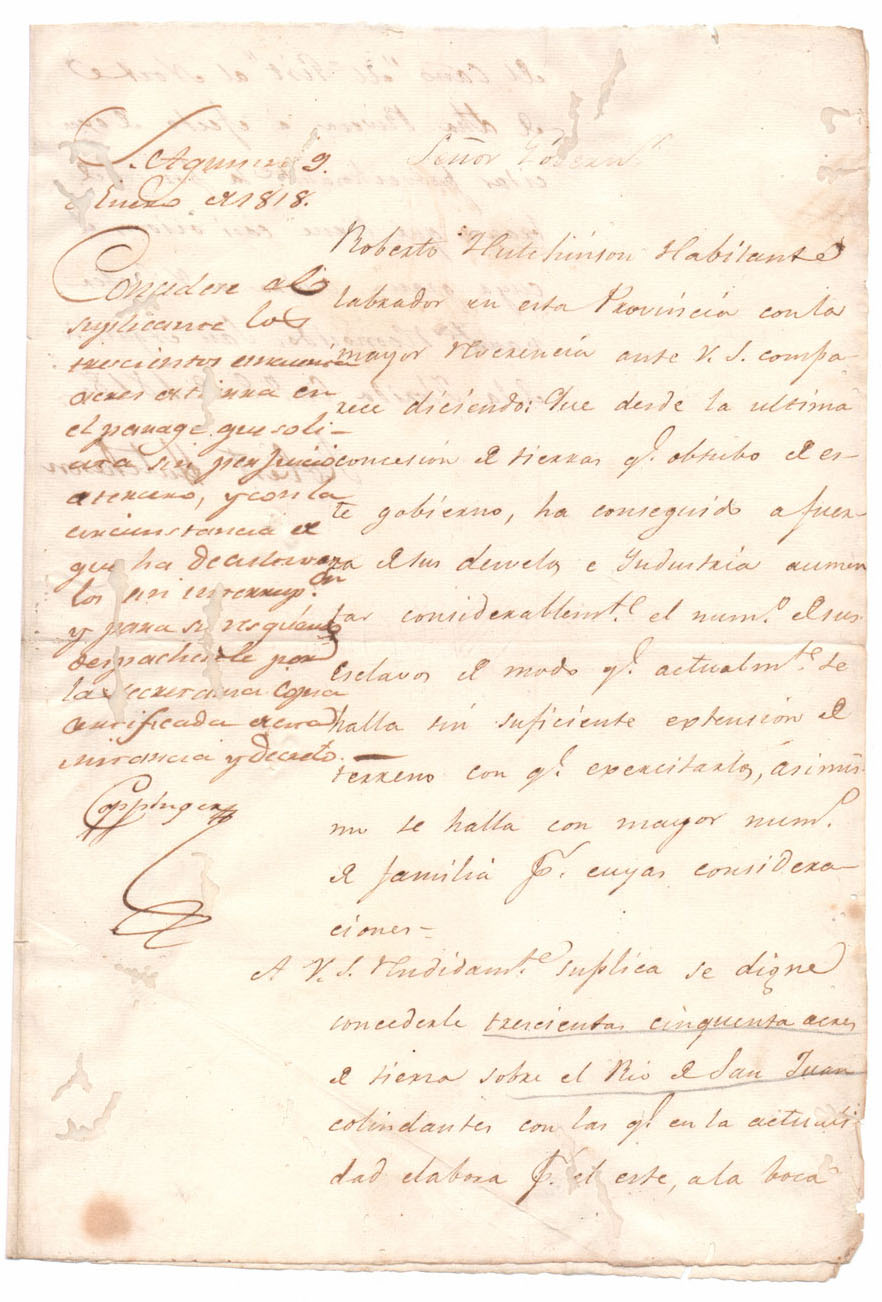 S. Agustin 9.
de Enero de 1818.
Concedese al
suplicante los
trescientos cincuenta
acres de tierra en
el parage que soli-
cita sin perjuicio
de tercero, y con la
circunstancia de
que ha de cultivar
los sin interrup.on
y para su resguardo
despachesele por
la secretaria copia
certificada de esta
instancia y decreto.
Coppinger
Señor Gobern.r
Roberto Hutchinson Habitante
labrador en esta Provincia con la
mayor Reverencia ante V. S. compa-
rece diciendo: Que desde la ultima
concesión de tierras q.e obtubo de es-
te gobierno, ha conseguido a fuer-
za de sus desvelos e Industria aumen
tar considerablem.te el num.o de sus
esclavos de modo q.e actualm.te se
halla sin suficiente extensión de
terreno con q.e exercitarlos, asimis-
mo se halla con mayor num.o
de familia p.r cuyas considera-
ciones-
A V. S. Rendidam.te suplica se digne
concederle trescientas cinquenta acres
de tierra sobre el Rio de San Juan
colindantes con las q.e en la actuali
dad elabora p.r el este, a la boca